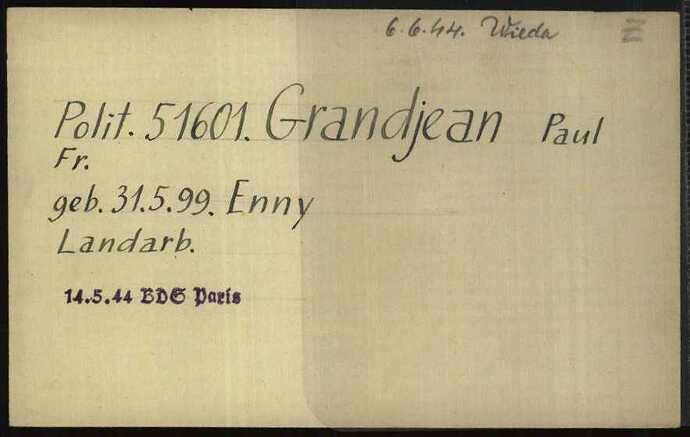 6.6.44. Wieda
Polit. 51601. Grandjean Paul
Fr.
geb. 31.5.99. Enny
Landarb.
14.5.44 BDS Paris